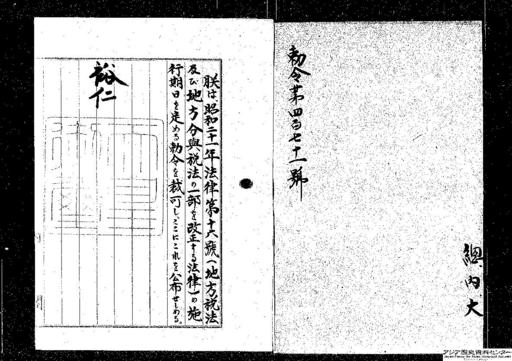 勅令第四百七十一號
總、内、大
朕は昭和二十一年法律第十六號(地方税法
及び地方分與税法の一部を改正する法律)の施
行期日を定める勅令を裁可し、ここにこれを公布せしめる。
裕仁
アジア歴史資料センター